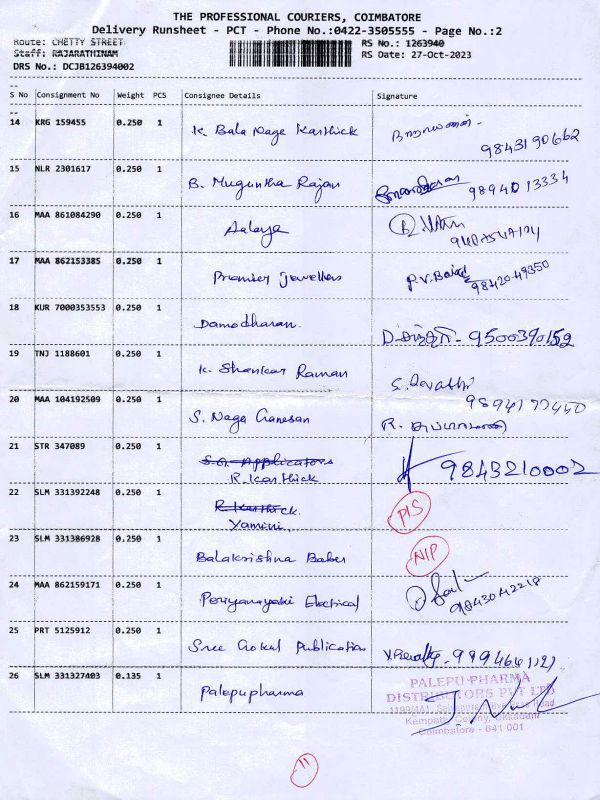 THE PROFESSIONAL COURIERS, COIMBATORE
Delivery Runsheet - PCT - Phone No.:0422-3505555 - Page No.:2
Route: CHETTY STREET RS No.: 1263940
Staff: RAJARATHINAM RS Date: 27-Oct-2023
DRS No.: DCJB126394002
S No Consignment No Weight PCS Consignee Details Signature
14 KRG 159455 0.250 1 K. Bala Naga Karthick
9843190662
15 NLR 2301617 0.250 1 B. Muguntha Rajan 9894013334
16 MAA 861084290 0.250 1 Aalaya
17 MAA 862153385 0.250 1 Premier Jewellers P.V. 9842049350
18 KUR 7000353553 0.250 1 Damodharan. 9500390152
19 TNJ 1188601 0.250 1 K. Shankar Raman S. Revathi
20 MAA 104192509 0.250 1 S. Naga Ganesan R.
21 STR 347089 0.250 1 S.G. Applicators
R. Karthick 9843210002
22 SLM 331392248 0.250 1 R. Karthick.
Yamini.
23 SLM 331386928 0.250 1 Balakrishna Babu NIP
24 MAA 862159171 0.250 1 Periyanayaki Electrical 9843042218
25 PRT 5125912 0.250 1 Sree Gokul Publication V. Revathy
26 SLM 331327403 0.135 1 Palepu pharma
PALEPU PHARMA
DISTRIBUTORS PVT LTD
Coimbatore - 641 001
11